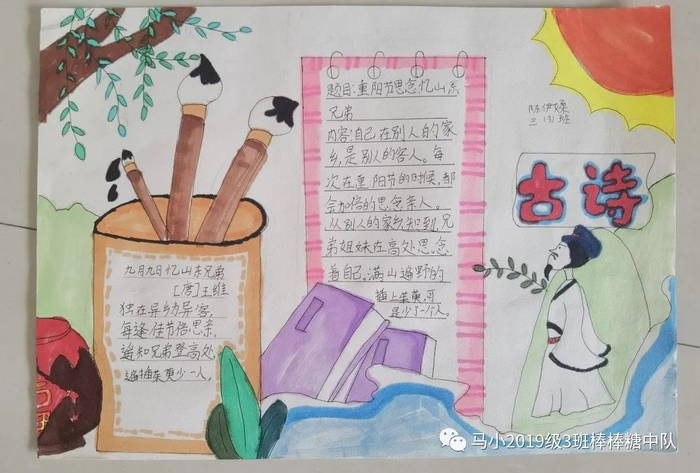 题目:重阳节思念忆山东
兄弟
内容:自己在别人的家
乡,是别人的客人。每
次在重阳节的时候,都
会加倍的思念亲人。
从别人的家乡知到,兄
弟姐妹在高处思念
着自己,满山遍野的
插上茱萸,可
是少了一个人。
三(3)班
古诗
九月九日忆山东兄弟
[唐]王维
独在异乡异客,
每逢佳节倍思亲,
遥知兄弟登高处,
遍插茱萸少一人。
马小2019级3班棒棒糖中队